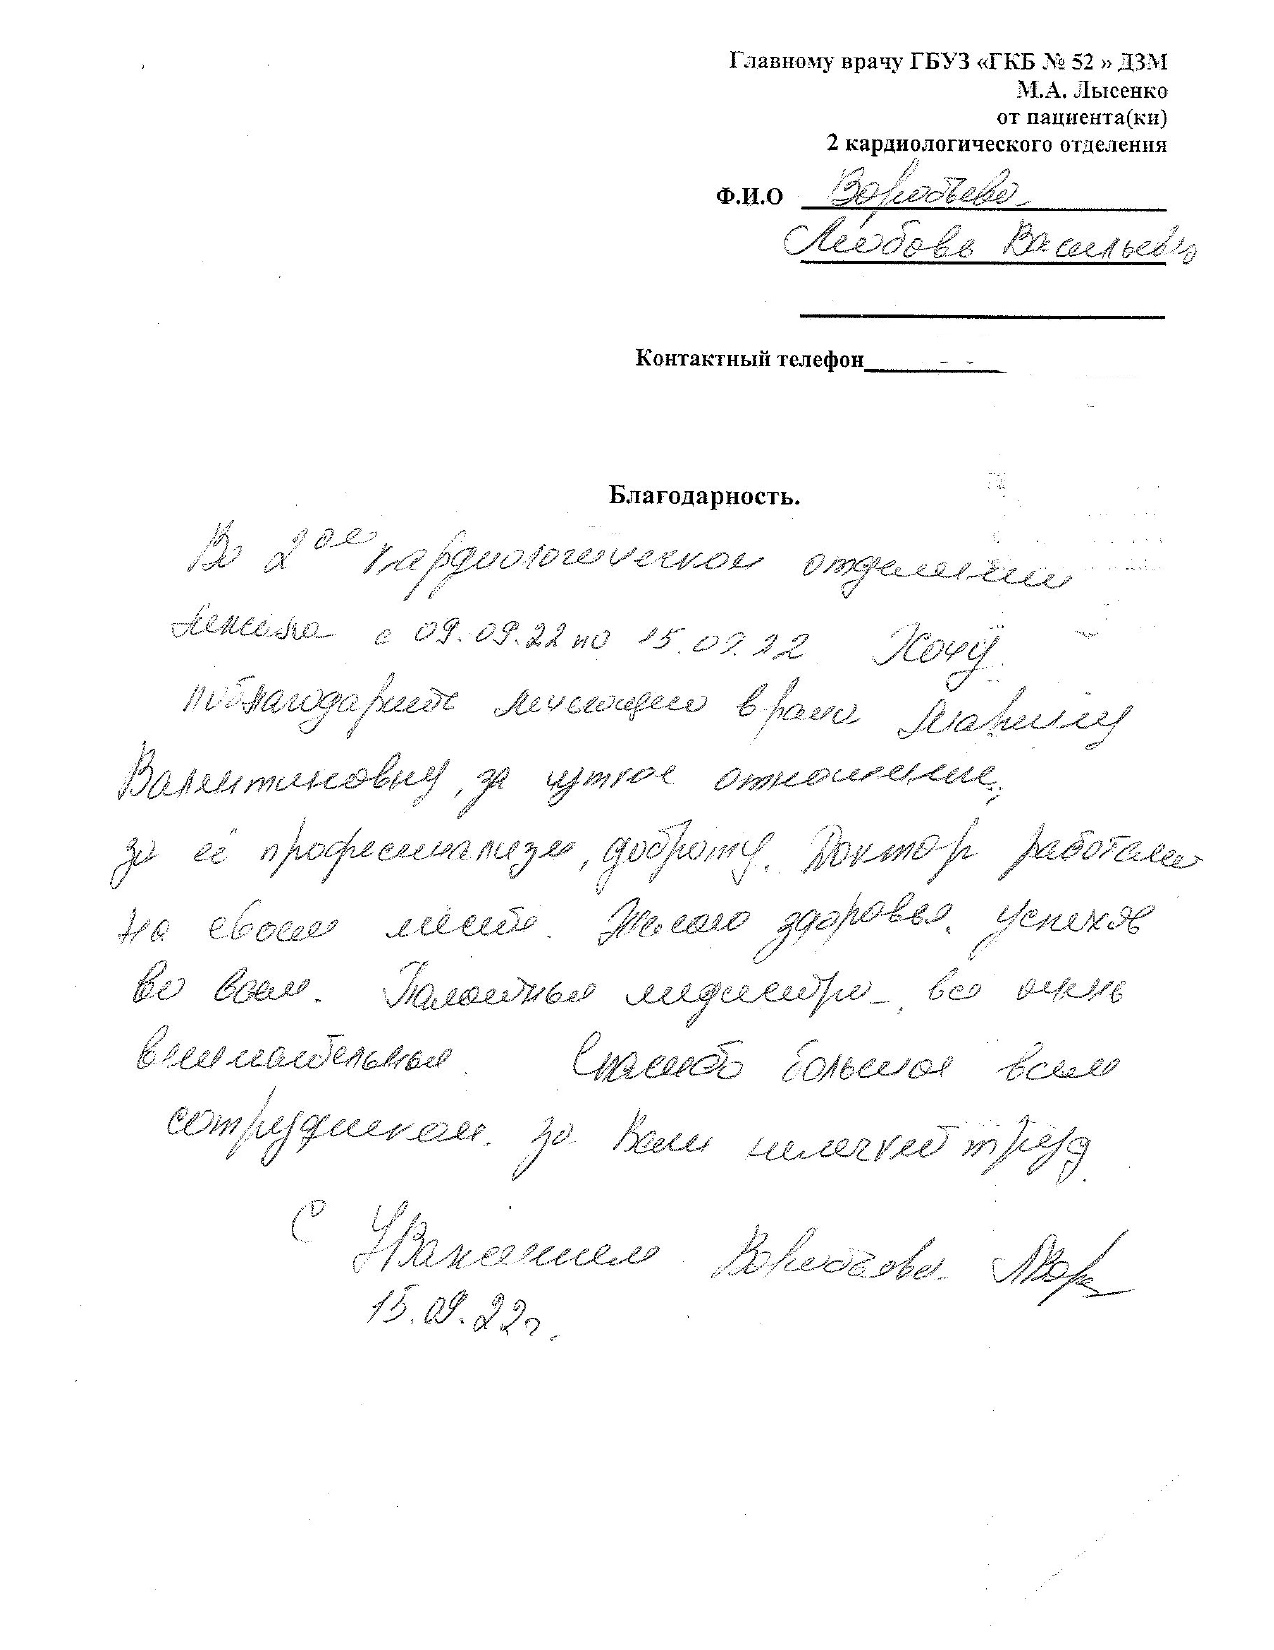 Главному врачу ГБУЗ «ГКБ № 52 » ДЗМ
М.А. Лысенко
от пациента(ки)
2 кардиологического отделения
Ф.И.О Воробьева
Любовь Васильевна
Контактный телефон
Благодарность.
Во 2ое кардиологическом отделении
лежала с 09.09.22 по 15.09.22 Хочу
поблагодарить лечащего врача Марину
Валентиновну, за чуткое отношение,
за её професионализм, доброту. Доктор работает
на своем месте. Желаю здоровья, успехов
во всем. Палатные медсестры, все очень
внимательные. Спасибо большое всем
сотрудникам за Ваш нелегкий труд.
С Уважением Воробьева
15.09.22г.